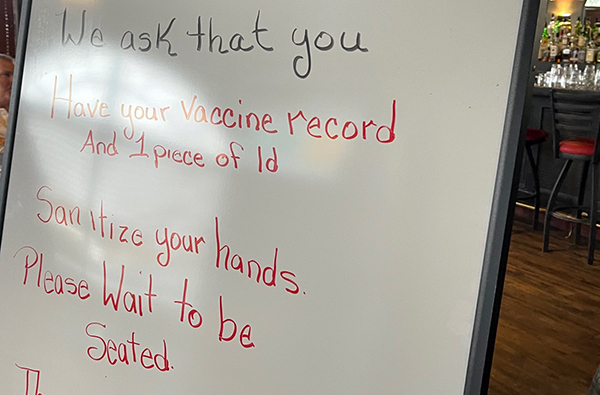 We ask that you
Have your Vaccine record
And 1 piece of Id
Sanitize your hands.
Please Wait to be
Seated.